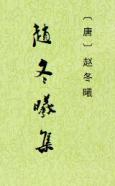 〔唐〕赵冬曦
趙冬曦集